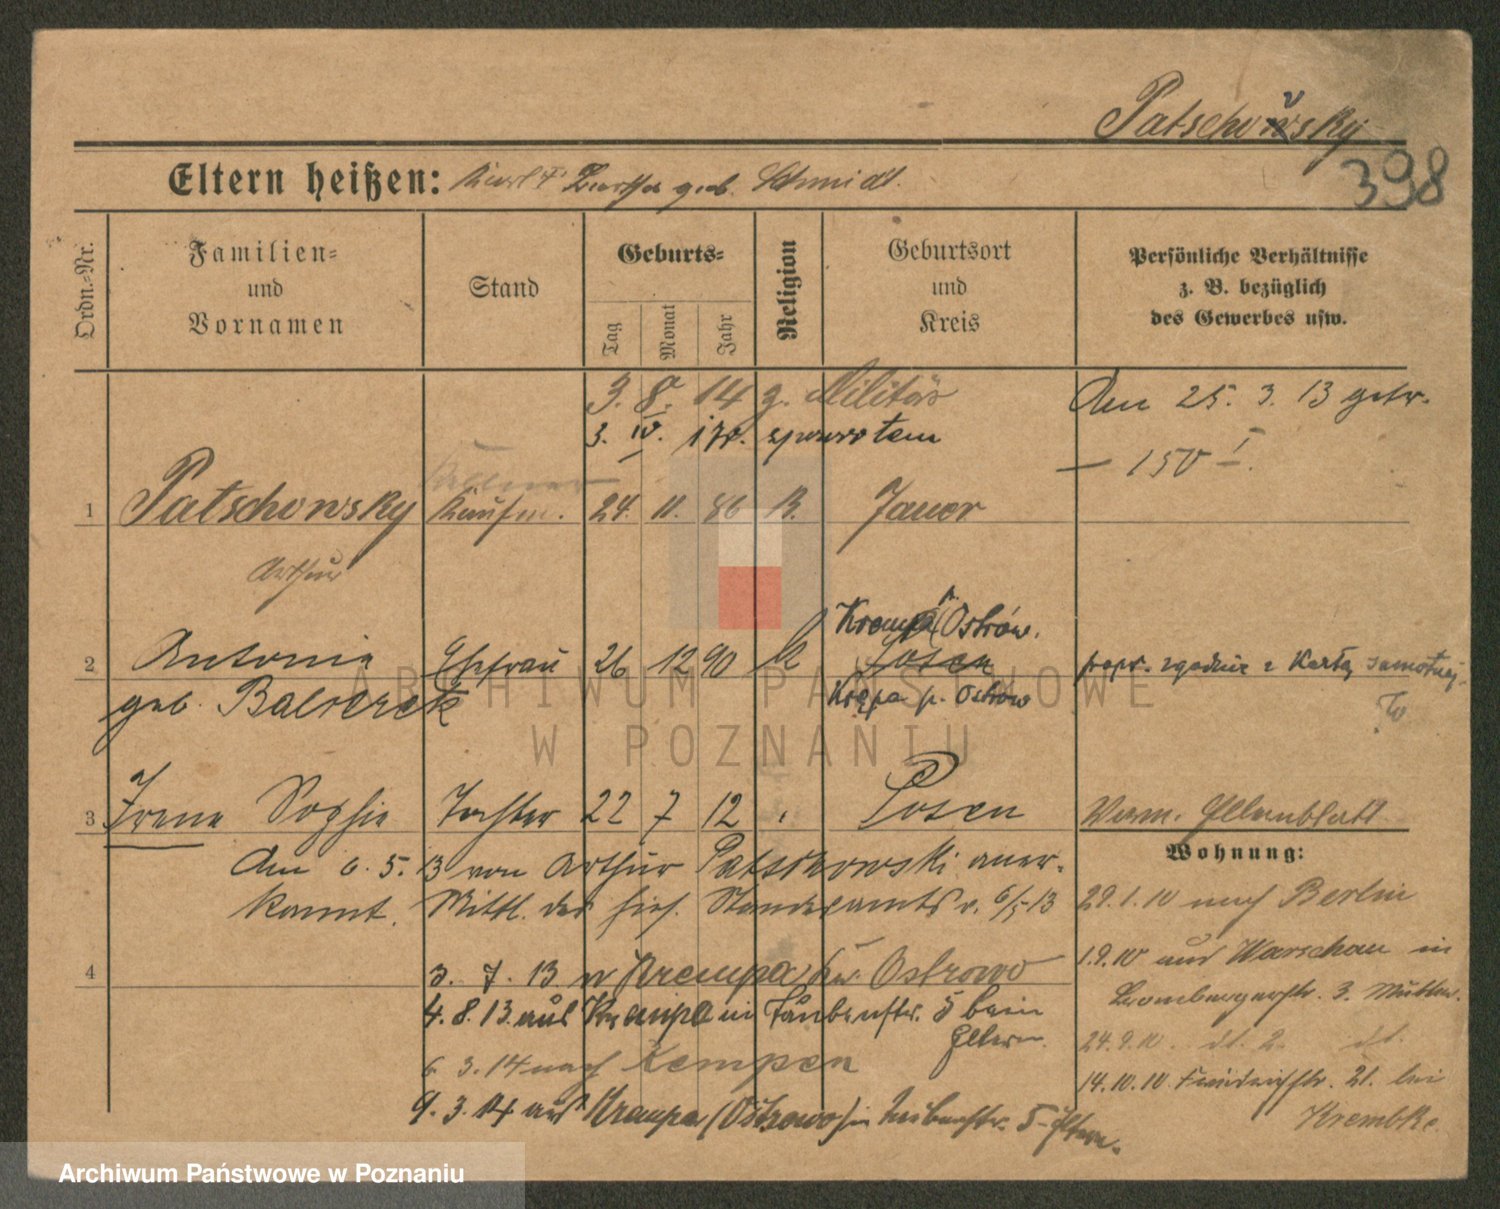 Patschowsky
398
Eltern heißen: Karl + Bertha geb. Schmidt.
Ordn.-Nr.
Familien-
und
Vornamen
Stand
Geburts-
Tag
Monat
Jahr
Religion
Geburtsort
und
Kreis
Persönliche Verhältnisse
z. B. bezüglich
des Gewerbes usw.
3. 8. 14 z. Militär
3. IV.
Am 25. 3. 13 getr.
— 150 I.
1 Patschowsky Kaufm. 24. 11. 86 K. Jauer
Arthur
Krempa Ostrów.
2 Antonie Ehefrau 26 12 90 K Posen popr. zgodnie z Kartą
geb. Krępa p. Ostrów
3 Irene Sophie Tochter 22 7 12 " Posen Verm. Elternblatt
Am 6. 5. 13 von Arthur Patschowski aner-
kannt. Mittl. des hies. Standesamts v. 6/5 13
Wohnung:
29. 1. 10 nach Berlin
1. 9. 10 aus Warschau in
Brombergerstr. 3. Mutter.
24. 9. 10. dt. 2. dt.
14. 10. 10 Friedrichstr. 21. bei
Krembke.
4
3. 7. 13 n Krempa Kr. Ostrowo
4. 8. 13. aus Krempa in Taubenstr. 5 beim
Eltern.
6. 3. 14 nach Kempen
9. 3. 14 aus Krempa (Ostrowo) in Taubenstr. 5 Eltern.
ARCHIWUM PAŃSTWOWE
W POZNANIU
Archiwum Państwowe w Poznaniu